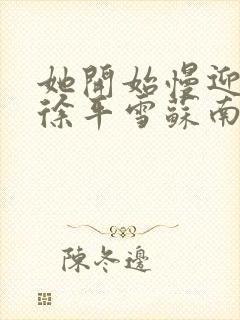 她開始慢迎
徐平雪蘇南
陳冬邊